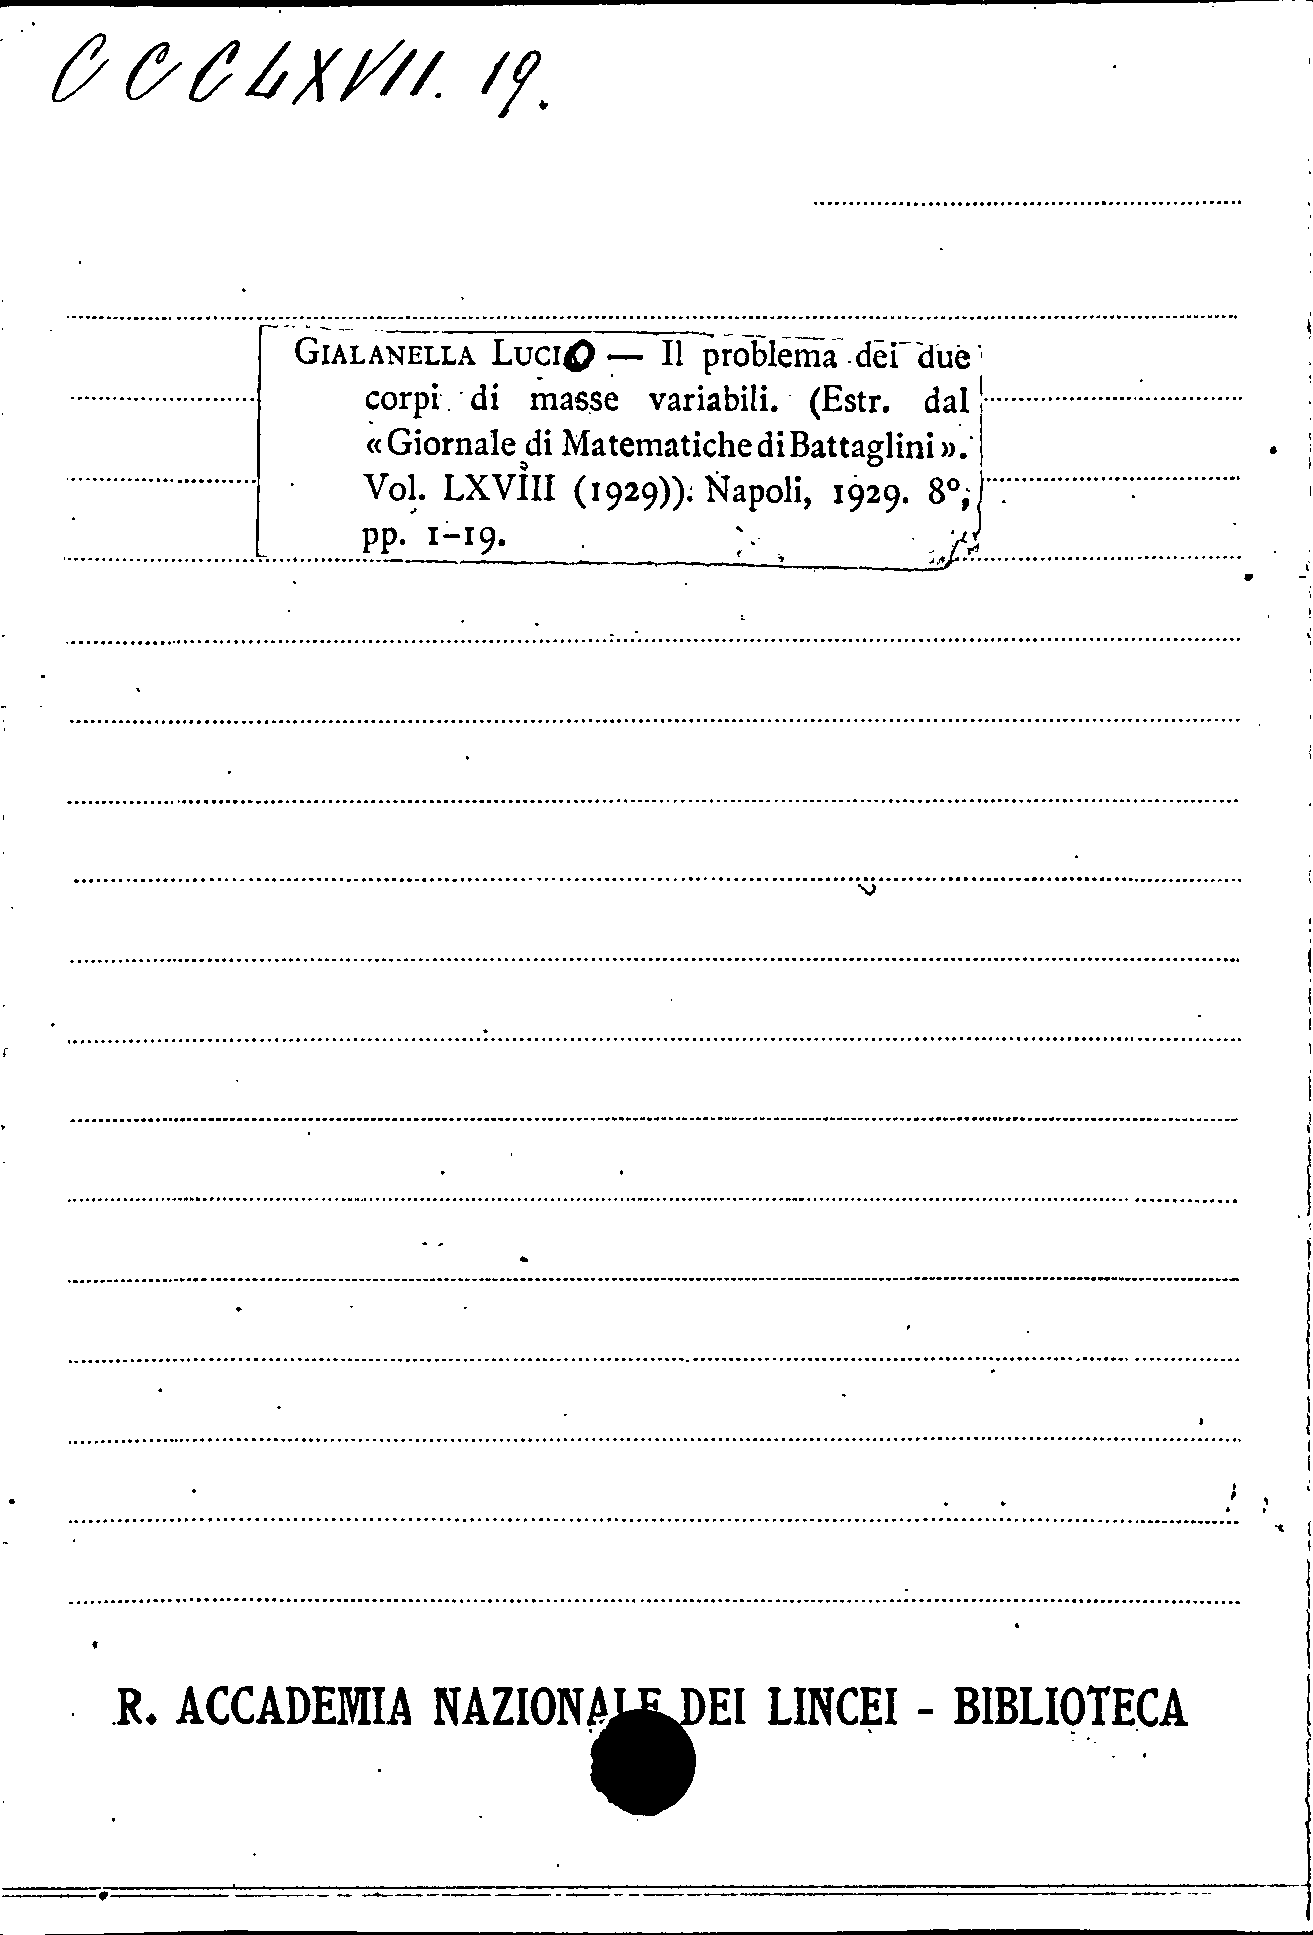 CCCLXVII. 19.
GIALANELLA LUCIO — Il problema dei due
corpi di masse variabili. (Estr. dal
«Giornale di Matematiche di Battaglini».
Vol. LXVIII (1929)). Napoli, 1929. 8°,
pp. 1-19.
R. ACCADEMIA NAZIONALE DEI LINCEI - BIBLIOTECA